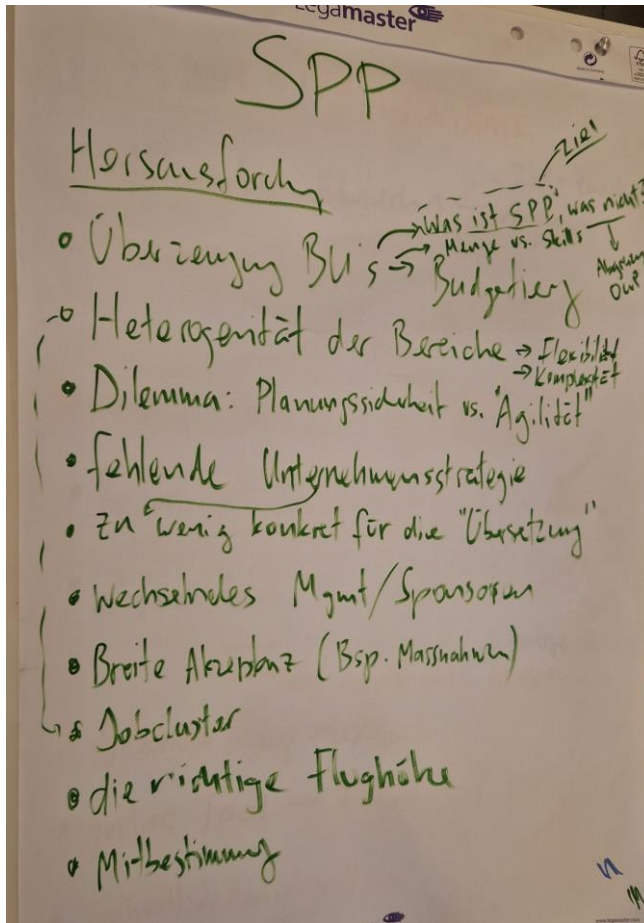 Legamaster
SPP
Ziel
Herausfordg
• Überzeugung BU's → "Was ist SPP", was nicht?
→ Menge vs. Skills
→ Budgetierg
OWP
• Heterogenität der Bereiche → Flexibilität
→ Komplexität
• Dilemma: Planungssicherheit vs. "Agilität"
• fehlende Unternehmensstrategie
• zu wenig konkret für die "Übersetzung"
• Wechselndes Mgmt/Sponsoren
• Breite Akzeptanz (Bsp. Massnahmen)
• Jobcluster
• die richtige Flughöhe
• Mitbestimmung
www.legamaster.com